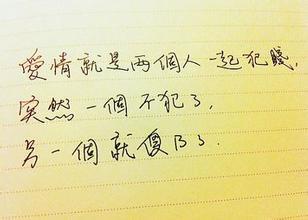 愛情就是两個人一起犯賤,
突然一個不犯了,
另一個就傻B了.